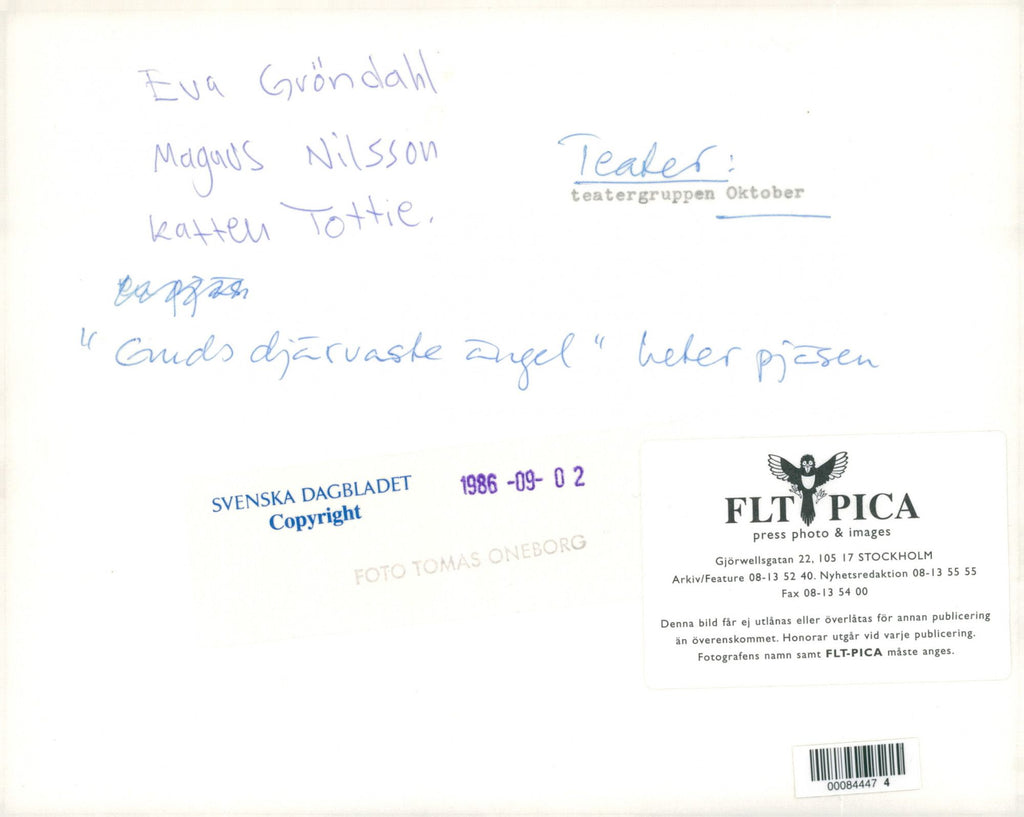 Eva Gröndahl
Magnus Nilsson
katten Tottie.
Teater:
teatergruppen Oktober
"Guds djärvaste ängel" heter pjäsen
SVENSKA DAGBLADET
Copyright
1986 -09- 0 2
FOTO TOMAS ONEBORG
FLT PICA
press photo & images
Gjörwellsgatan 22, 105 17 STOCKHOLM
Arkiv/Feature 08-13 52 40. Nyhetsredaktion 08-13 55 55
Fax 08-13 54 00
Denna bild får ej utlånas eller överlåtas för annan publicering
än överenskommet. Honorar utgår vid varje publicering.
Fotografens namn samt FLT-PICA måste anges.
00084447 4